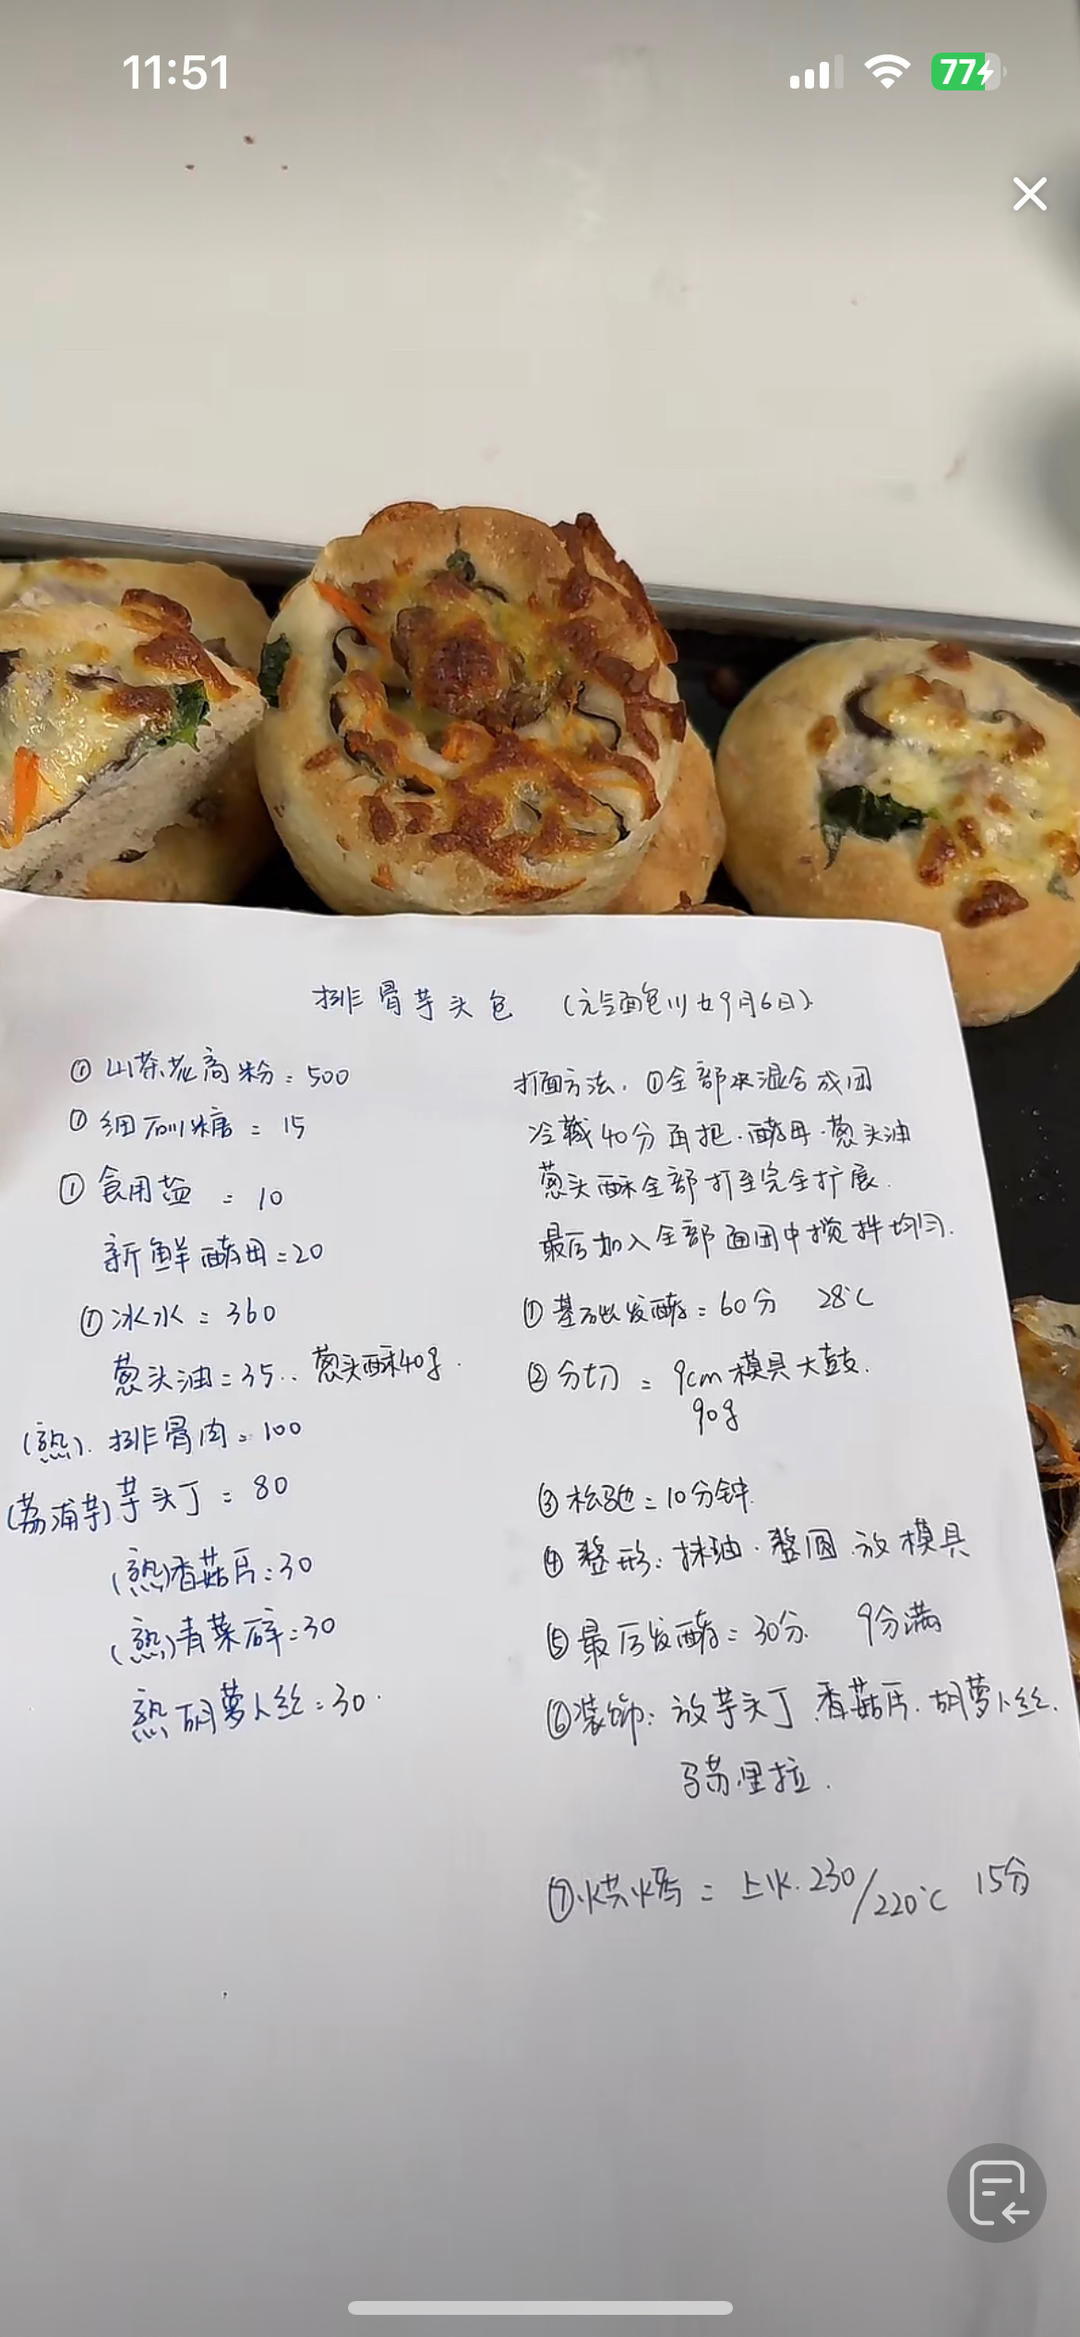 11:51
77
排骨芋头包 (元气面包川女9月6日)
① 山茶花高粉 = 500
① 细砂糖 = 15
① 食用盐 = 10
新鲜酵母 = 20
① 冰水 = 360
葱头油 = 35.. 葱头酥40g.
(熟). 排骨肉 = 100
(荔浦芋) 芋头丁 = 80
(熟)香菇片 = 30
(熟)青菜碎 = 30
熟 胡萝卜丝 = 30.
打面方法. ①全部来混合成团
冷藏40分再把.酵母.葱头油
葱头酥全部打至完全扩展.
最后加入全部面团中搅拌均匀.
① 基础发酵 = 60分 28℃
② 分切 = 9cm模具大鼓.
90g
③ 松弛 = 10分钟.
④ 整形: 抹油.整圆.放模具
⑤ 最后发酵 = 30分. 9分满
⑥装饰: 放芋头丁.香菇片.胡萝卜丝.
马苏里拉.
⑦烘烤 = 上火.230/220℃ 15分